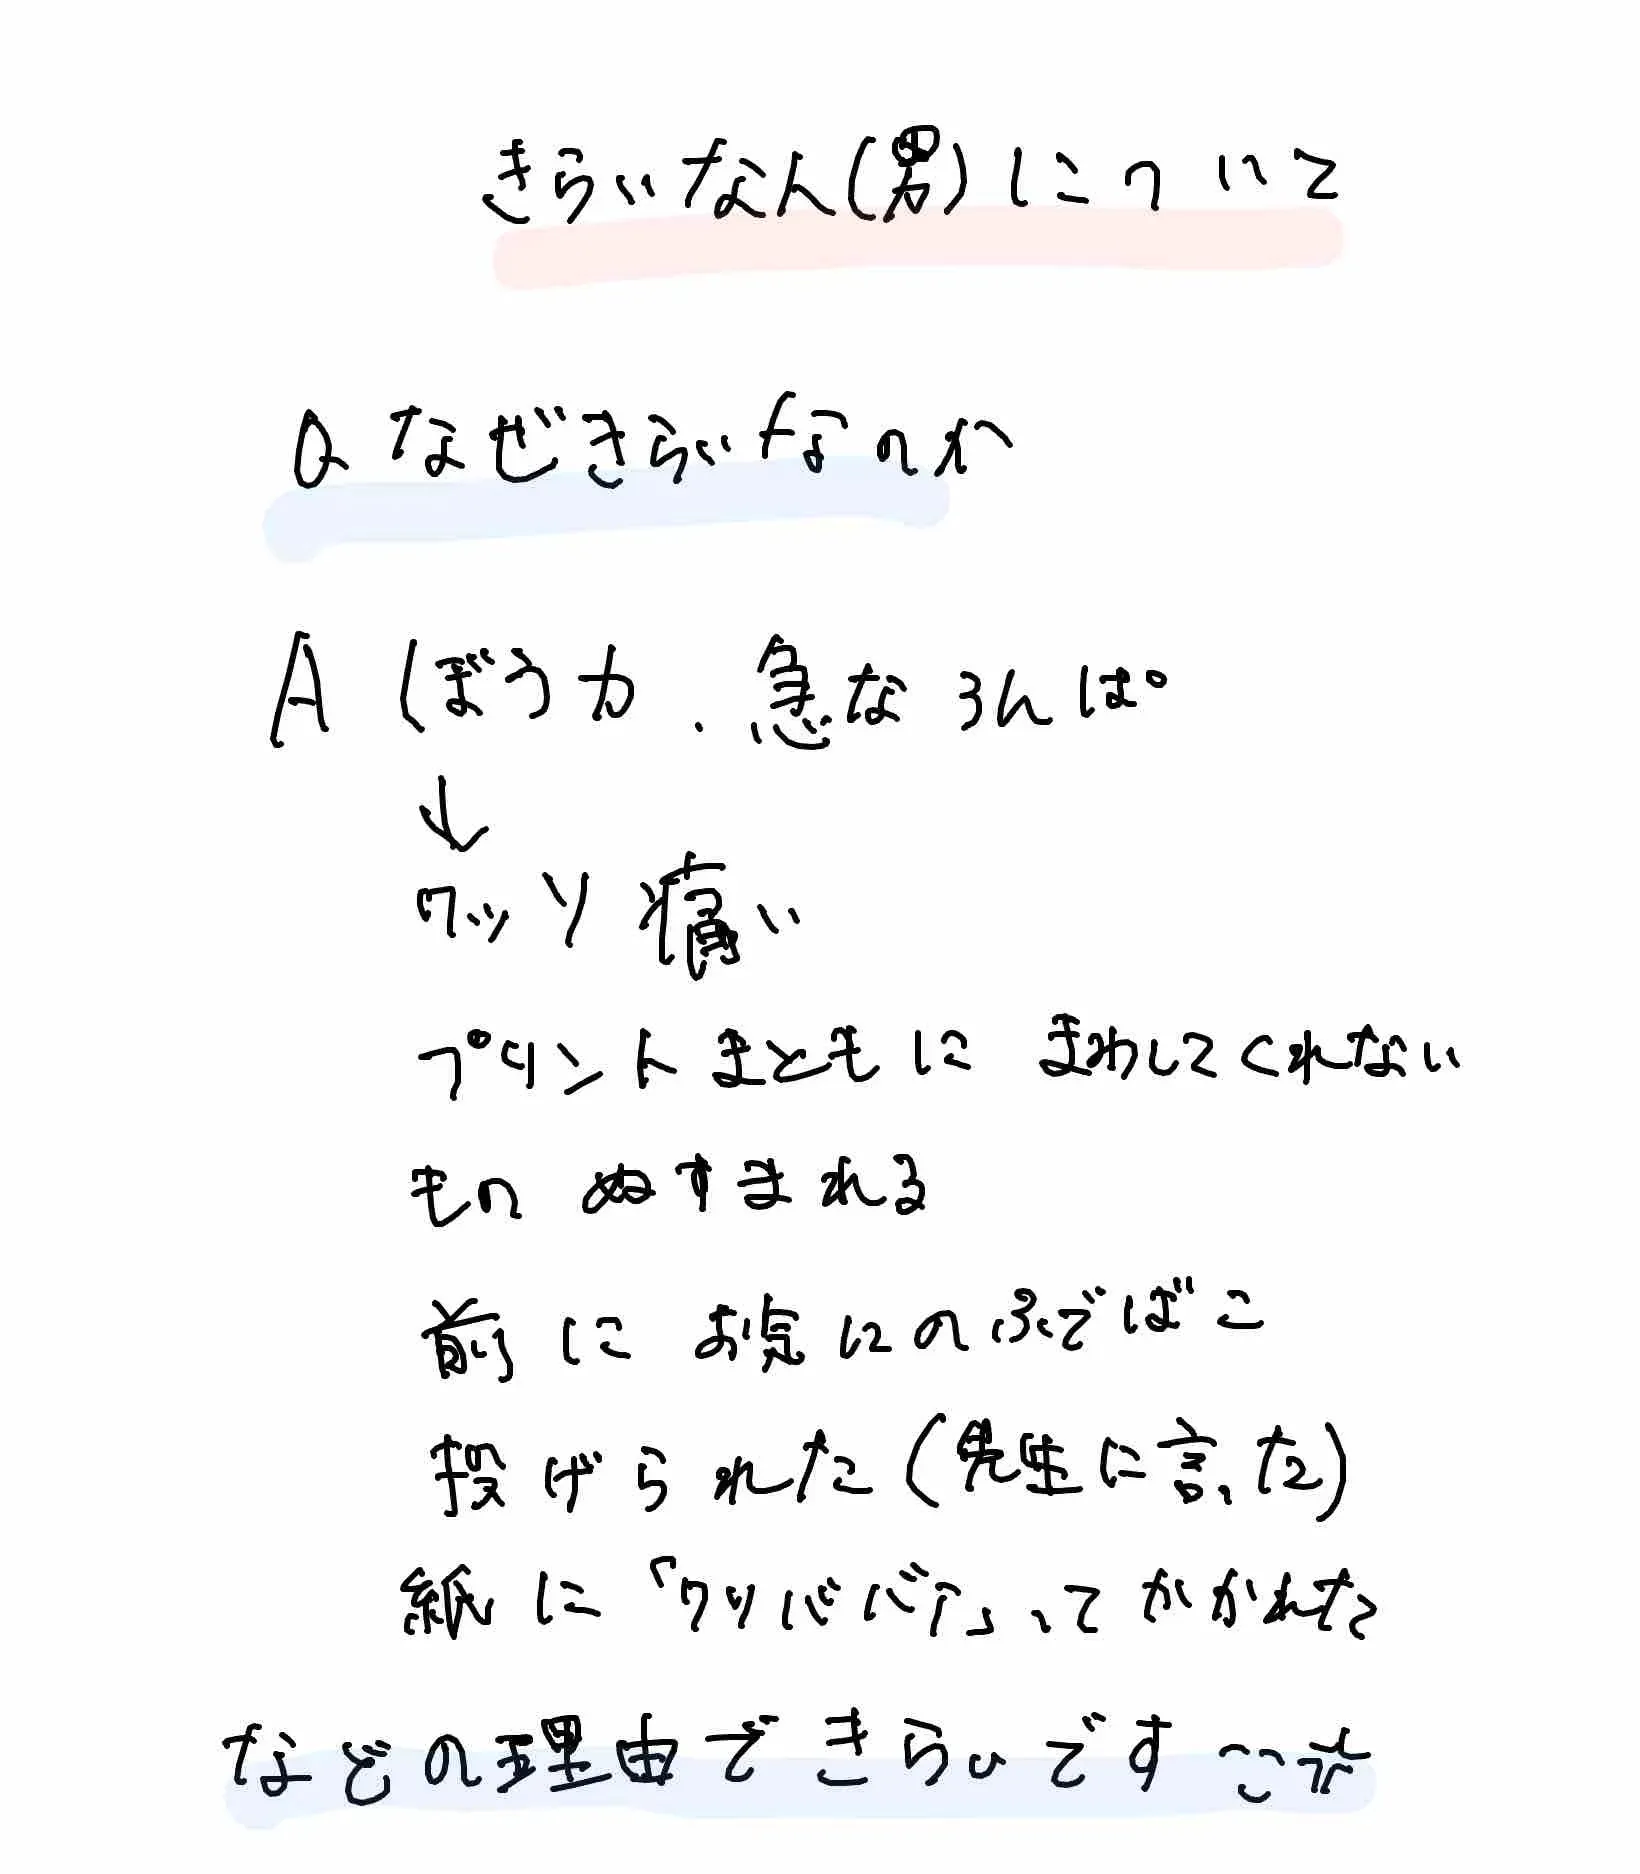 きらいなん(男)について
Q なぜきらいなのか
A (ぼう力、急なろんぱ
↓
クッソ痛い
プリントまともに まわしてくれない
もの ぬすまれる
前に お気にのふでばこ
投げられた(先生に言った)
紙に「クソババア」ってかかれた
などの理由できらいです